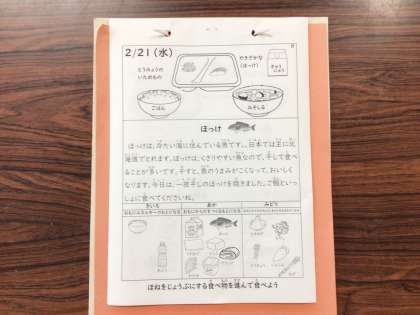 2/21(水)
とうみょうの
いためもの
やきざかな
(ほっけ)
ぎゅう
にゅう
ごはん
みそしる
ほっけ
ほっけは、冷たい海に住んでいる魚です。日本では主に北
海道でとれます。ほっけは、くさりやすい魚なので、干して食べ
ることが多いです。干すと、魚のうまみがこくなって、おいしく
なります。今日は、一夜干しのほっけを焼きました。ご飯といっ
しょに食べてくださいね。
きいろ
あか
みどり
おもにエネルギーのもとになる
おもにからだをつくるもとになる
ほねをじょうぶにする食べ物を進んで食べよう